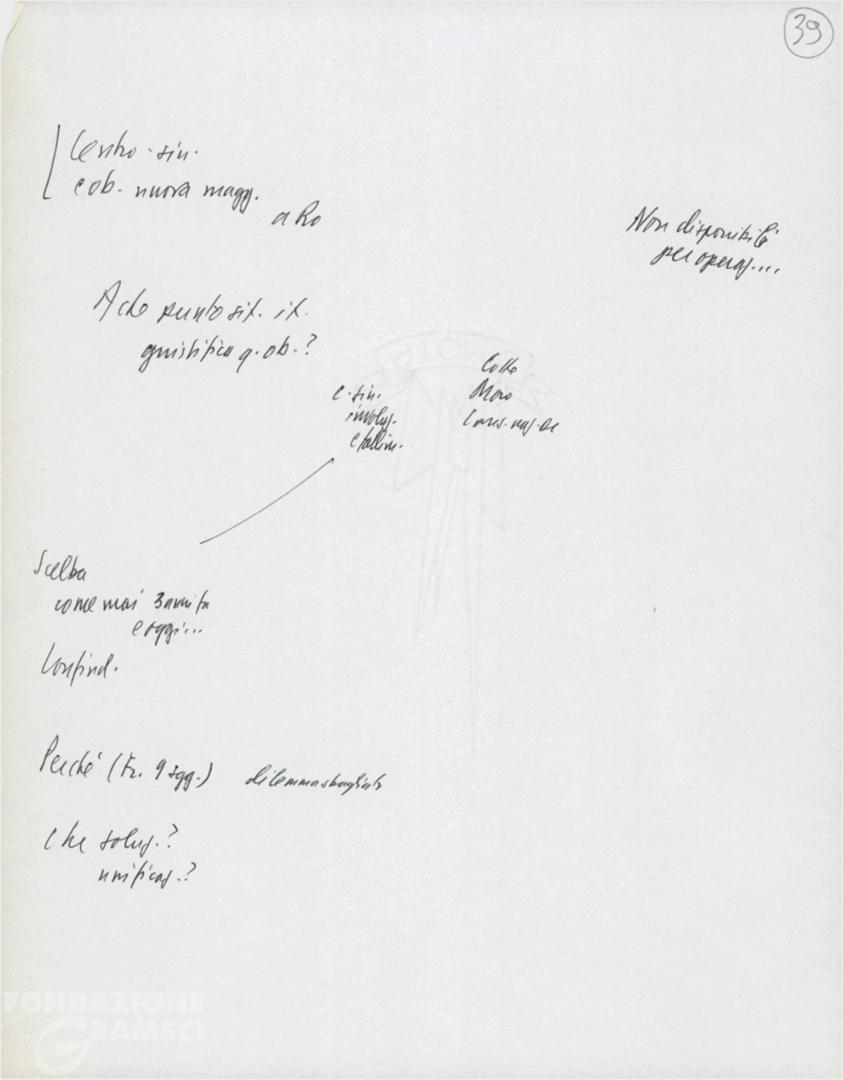 39
Centro-sin.
e ob. nuova magg.
a Ro
Non disponibili
per operaz....
A che punto sit. it.
giustifica q. ob.?
c.-sin.
involuz.
e fallim.
Moro
Cons. naz. DC
Scelba
come mai 3 anni fa
e oggi...
Confind.
Perché (Fr. 9 sgg.) dilemma sbagliato
Che soluz.?
unificaz.?
FONDAZIONE
GRAMSCI